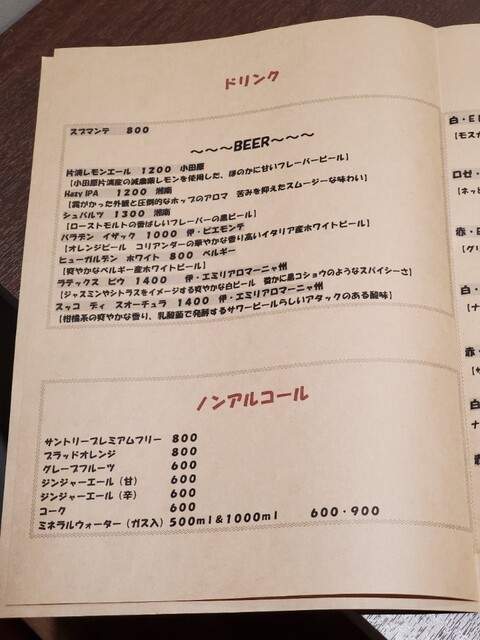 ドリンク
スプマンテ 800
～～～BEER～～～
片浦レモンエール 1200 小田原
【小田原片浦産の減農薬レモンを使用した、ほのかに甘いフレーバービール】
Hazy IPA 1200 湘南
【霞がかった外観と圧倒的なホップのアロマ 苦みを抑えたスムージーな味わい】
シュバルツ 1300 湘南
【ローストモルトの香ばしいフレーバーの黒ビール】
バラデン イザック 1000 伊・ピエモンテ
【オレンジピール コリアンダーの華やかな香り高いイタリア産ホワイトビール】
ヒューガルデン ホワイト 800 ベルギー
【爽やかなベルギー産ホワイトビール】
ラテックス ピウ 1400 伊・エミリアロマーニャ州
【ジャスミンやシトラスをイメージする爽やかな白ビール 微かに黒コショウのようなスパイシーさ】
スッコ ディ スオーチェラ 1400 伊・エミリアロマーニャ州
【柑橘系の爽やかな香り、乳酸菌で発酵するサワービールらしいアタックのある酸味】
ノンアルコール
サントリープレミアムフリー 800
ブラッドオレンジ 800
グレープフルーツ 600
ジンジャーエール（甘） 600
ジンジャーエール（辛） 600
コーク 600
ミネラルウォーター（ガス入）500ml＆1000ml 600・900
白・
赤・
白・
赤・
白